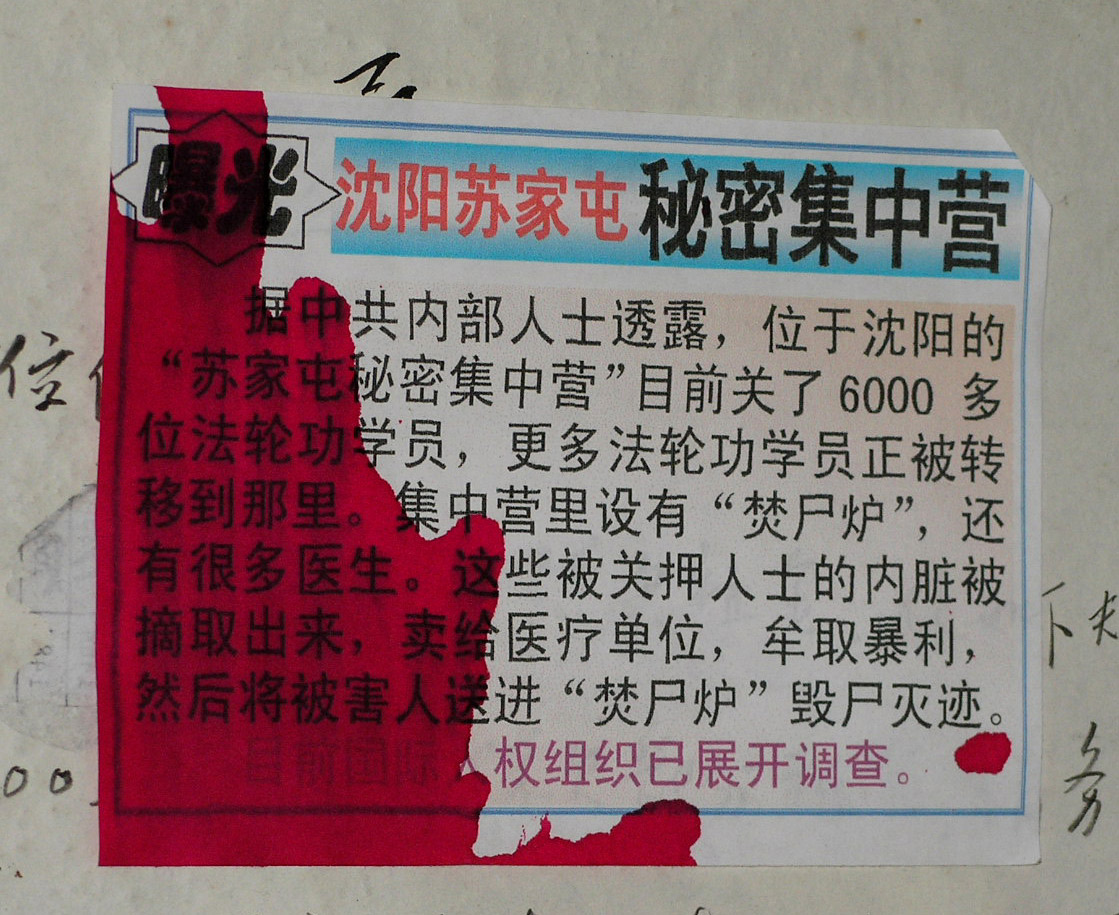 曝光 沈阳苏家屯 秘密集中营
据中共内部人士透露，位于沈阳的
“苏家屯秘密集中营”目前关了 6000 多
位法轮功学员，更多法轮功学员正被转
移到那里。集中营里设有“焚尸炉”，还
有很多医生。这些被关押人士的内脏被
摘取出来，卖给医疗单位，牟取暴利，
然后将被害人送进“焚尸炉”毁尸灭迹。
目前国际人权组织已展开调查。
位
下
务
00